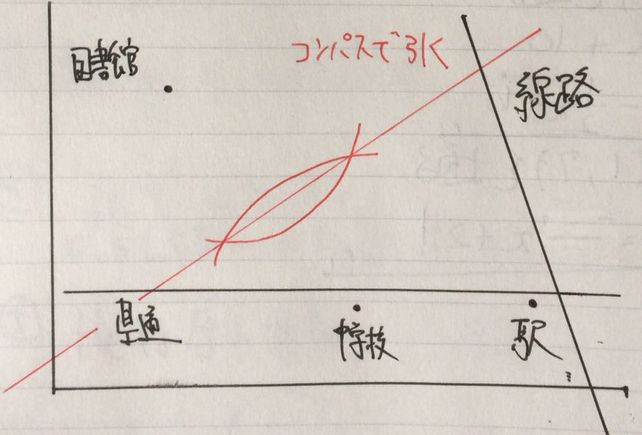 コンパスで引く
図書館
線路
県道
中学校
駅